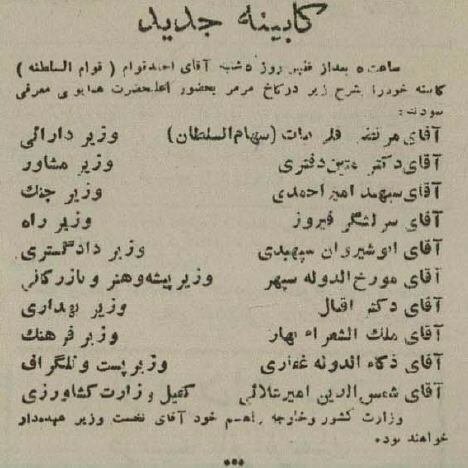 کابینه جدید
ساعت ۵ بعداز ظهر روز ۵شنبه آقای احمدقوام ( قوام السلطنه )
کابینه خودرا بشرح زیر درکاخ مرمر بحضور اعلیحضرت همایونی معرفی
نمودند:
آقای مرتضی قلی بیات (سهام‌السلطان) وزیر دارائی
آقای دکتر متین‌دفتری وزیر مشاور
آقای سپهبد امیر احمدی وزیر جنك
آقای سر لشگر فیروز وزیر راه
آقای انوشیروان سپهبدی وزیر دادگستری
آقای مورخ الدوله سپهر وزیر پیشه‌وهنر و بازرگانی
آقای دکتر اقبال وزیر بهداری
آقای ملك الشعراء بهار وزیر فرهنك
آقای ذکاء الدوله غفاری وزیر پست و تلگراف
آقای شمس‌الدین امیرعلائی کفیل وزارت کشاورزی
وزارت کشور وخارجه راهم خود آقای نخست وزیر عهده‌دار
خواهند بود.